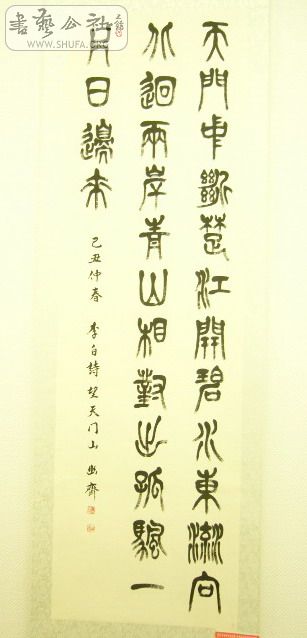 書藝公社
WWW.SHUFA.COM
天門中斷楚江開碧水東流向
北迴兩岸青山相對出孤颿一
片日邊来
己丑仲春 李白詩望天门山